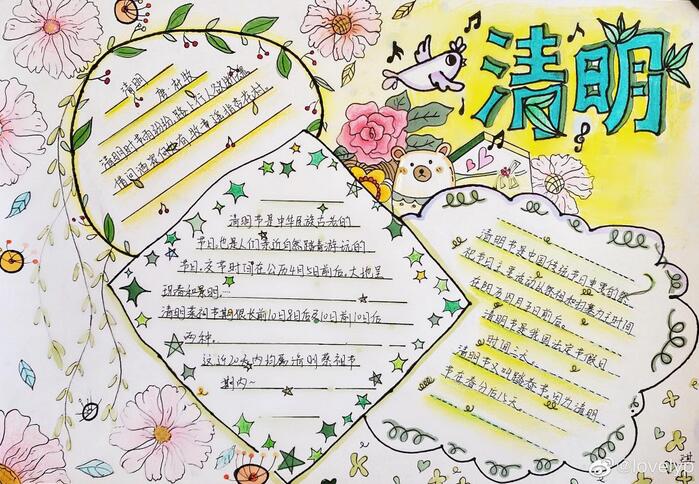 清明
清明
唐·杜牧
清明时节雨纷纷,路上行人欲断魂
借问酒家何处有,牧童遥指杏花村
清明节是中华民族古老的
节日,也是人们亲近自然、踏青游玩的
节日,次节时间在公历4月5日前后,大地呈
现春和景明。
清明祭祖节期很长前10日8日后至10日前10日后
两种。
这近20天内均属清明祭祖节
期内~
清明节是中国传统节日重要的祭
祀节日主要活动从祭祖和扫墓为主时间
在阳历四月五日前后。
清明节是我国法定节假日
时间三天。
清明节又叫踏春节,因为清明
节在春分后15天。
@lovelyp